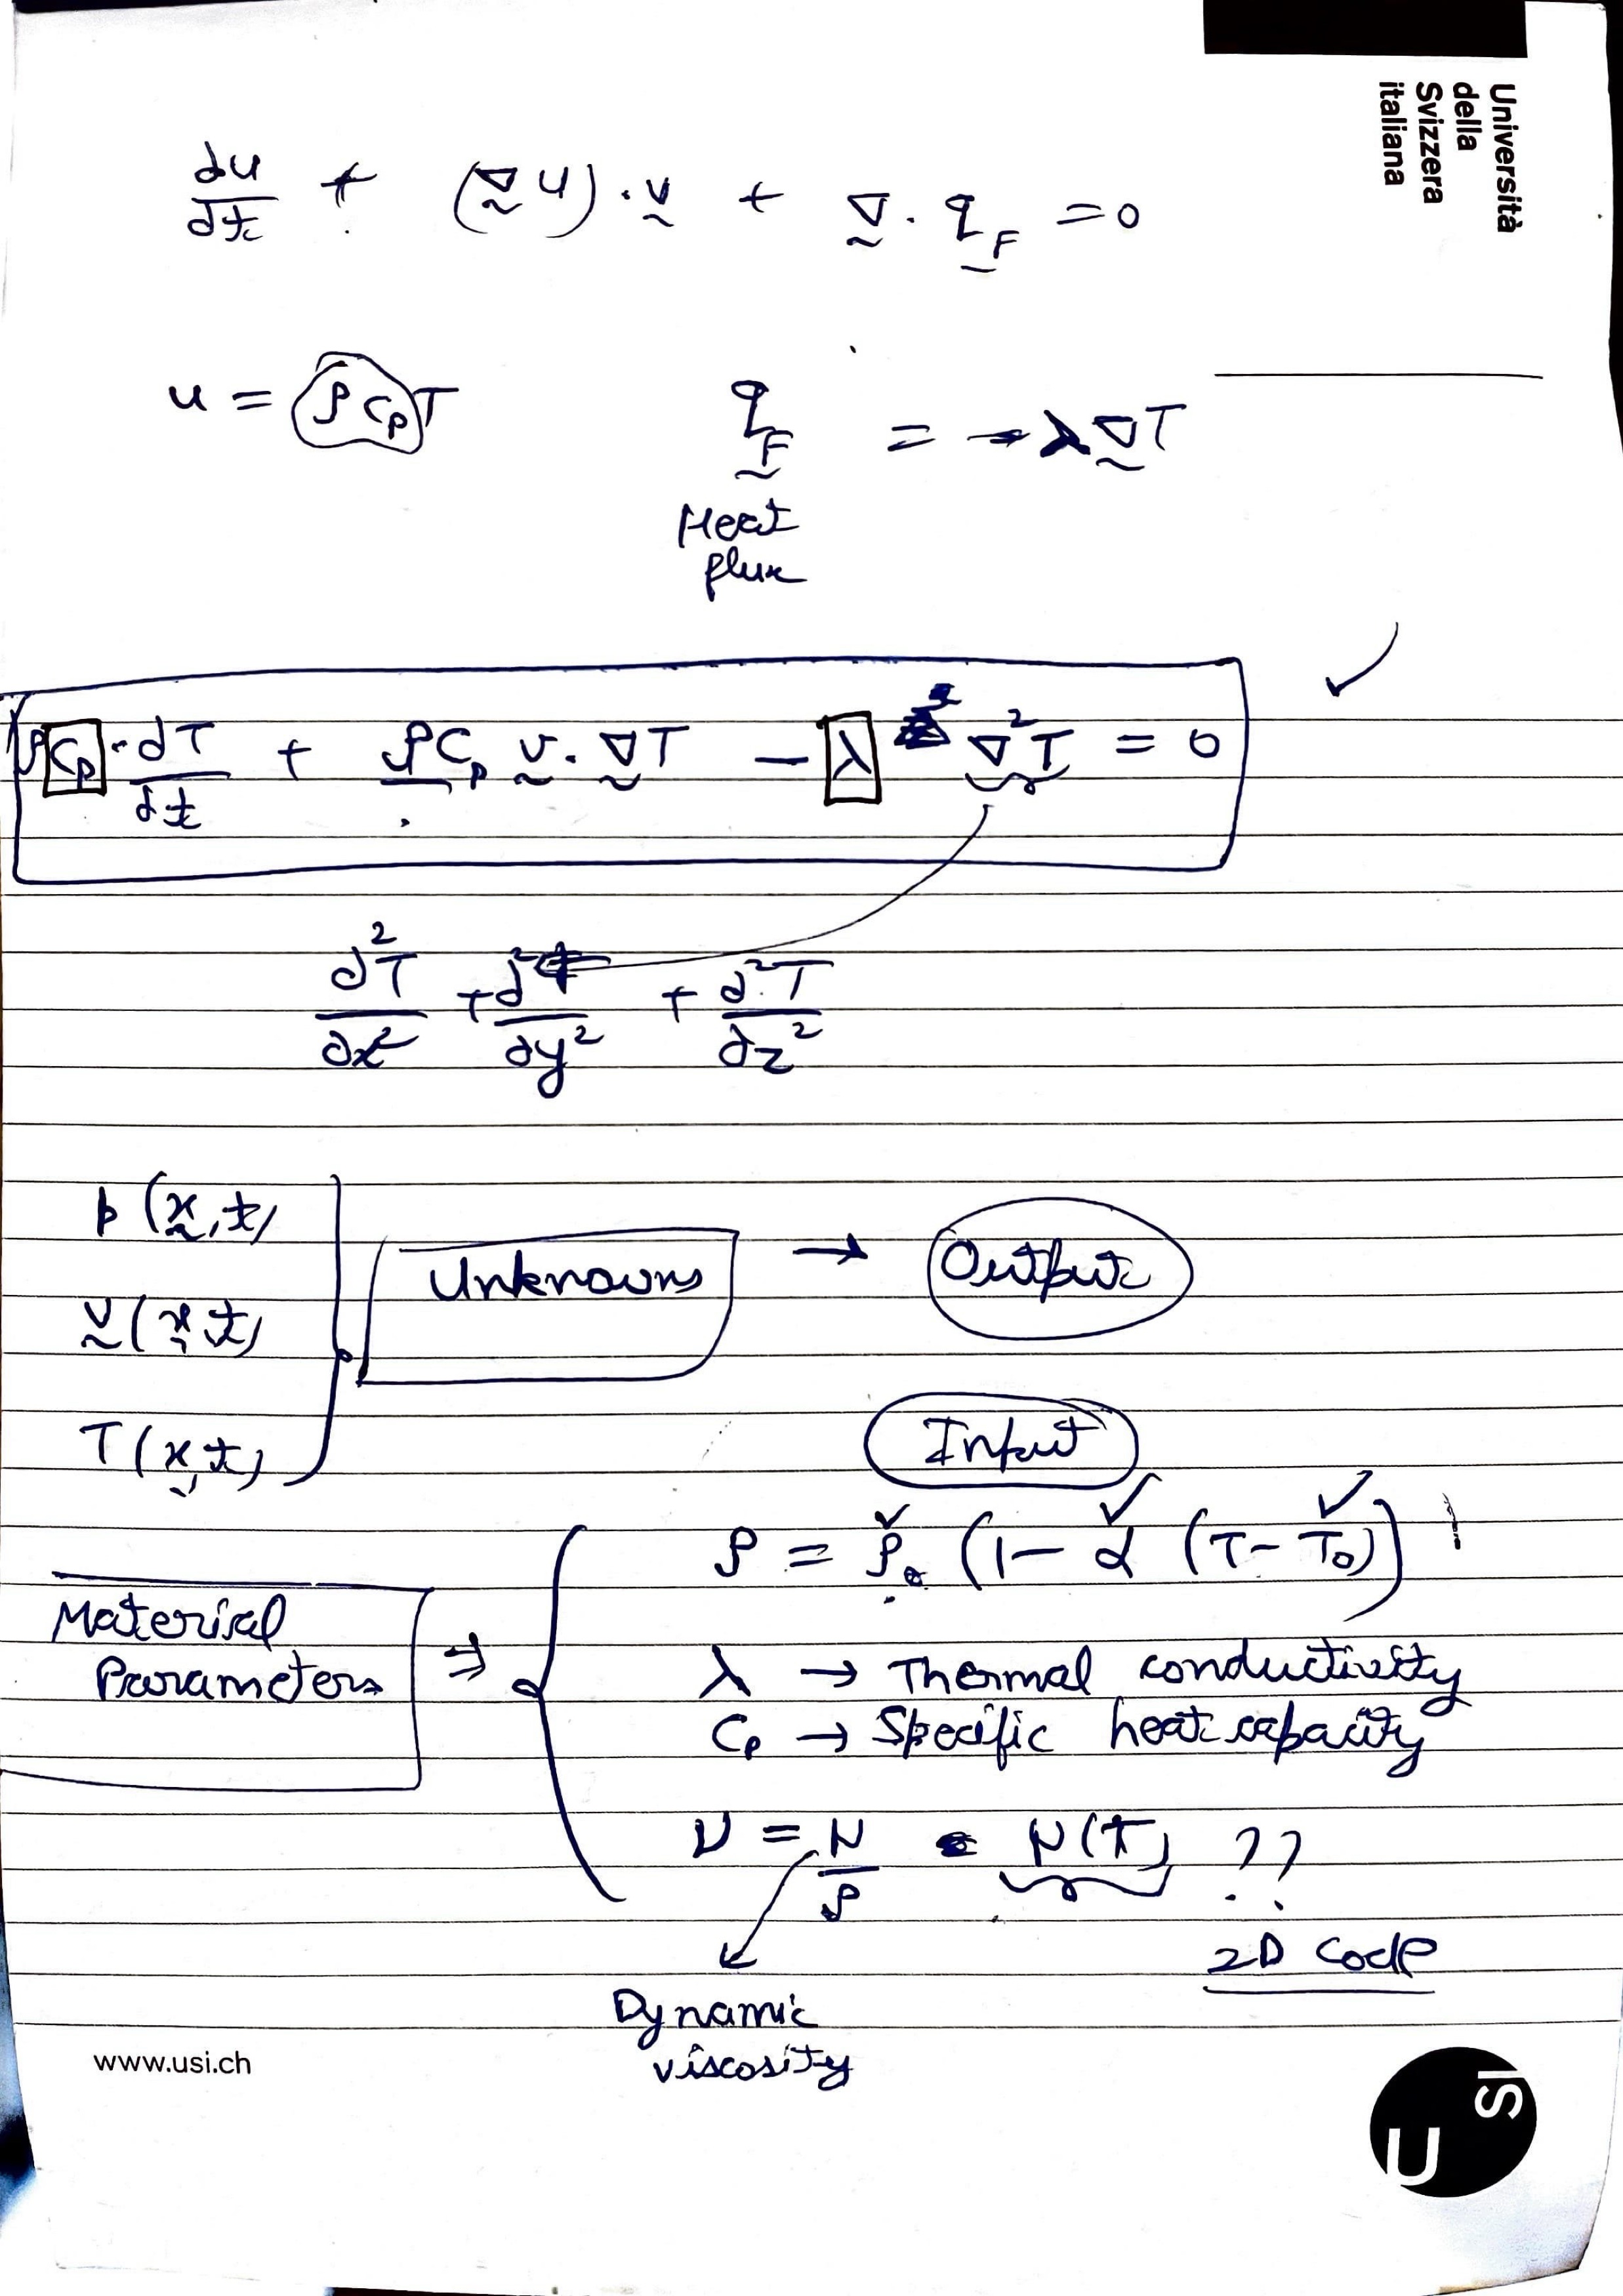 Università
della
Svizzera
italiana
∂u/∂t + (∇u) · v + ∇ · q_F = 0
u = ρ C_p T
q_F = - λ ∇T
Heat
flux
ρ C_p · ∂T/∂t + ρ C_p v · ∇T - λ ∇²T = 0
∂²T/∂x² + ∂²T/∂y² + ∂²T/∂z²
p (x, t)
Unknowns → Output
v (x, t)
T (x, t)
Input
ρ = ρ₀ (1 - α (T - T₀))
Material
Parameters ⇒
λ → Thermal conductivity
C_p → Specific heat capacity
ν = μ/ρ μ(T) ??
2D Code
Dynamic
viscosity
www.usi.ch
USI